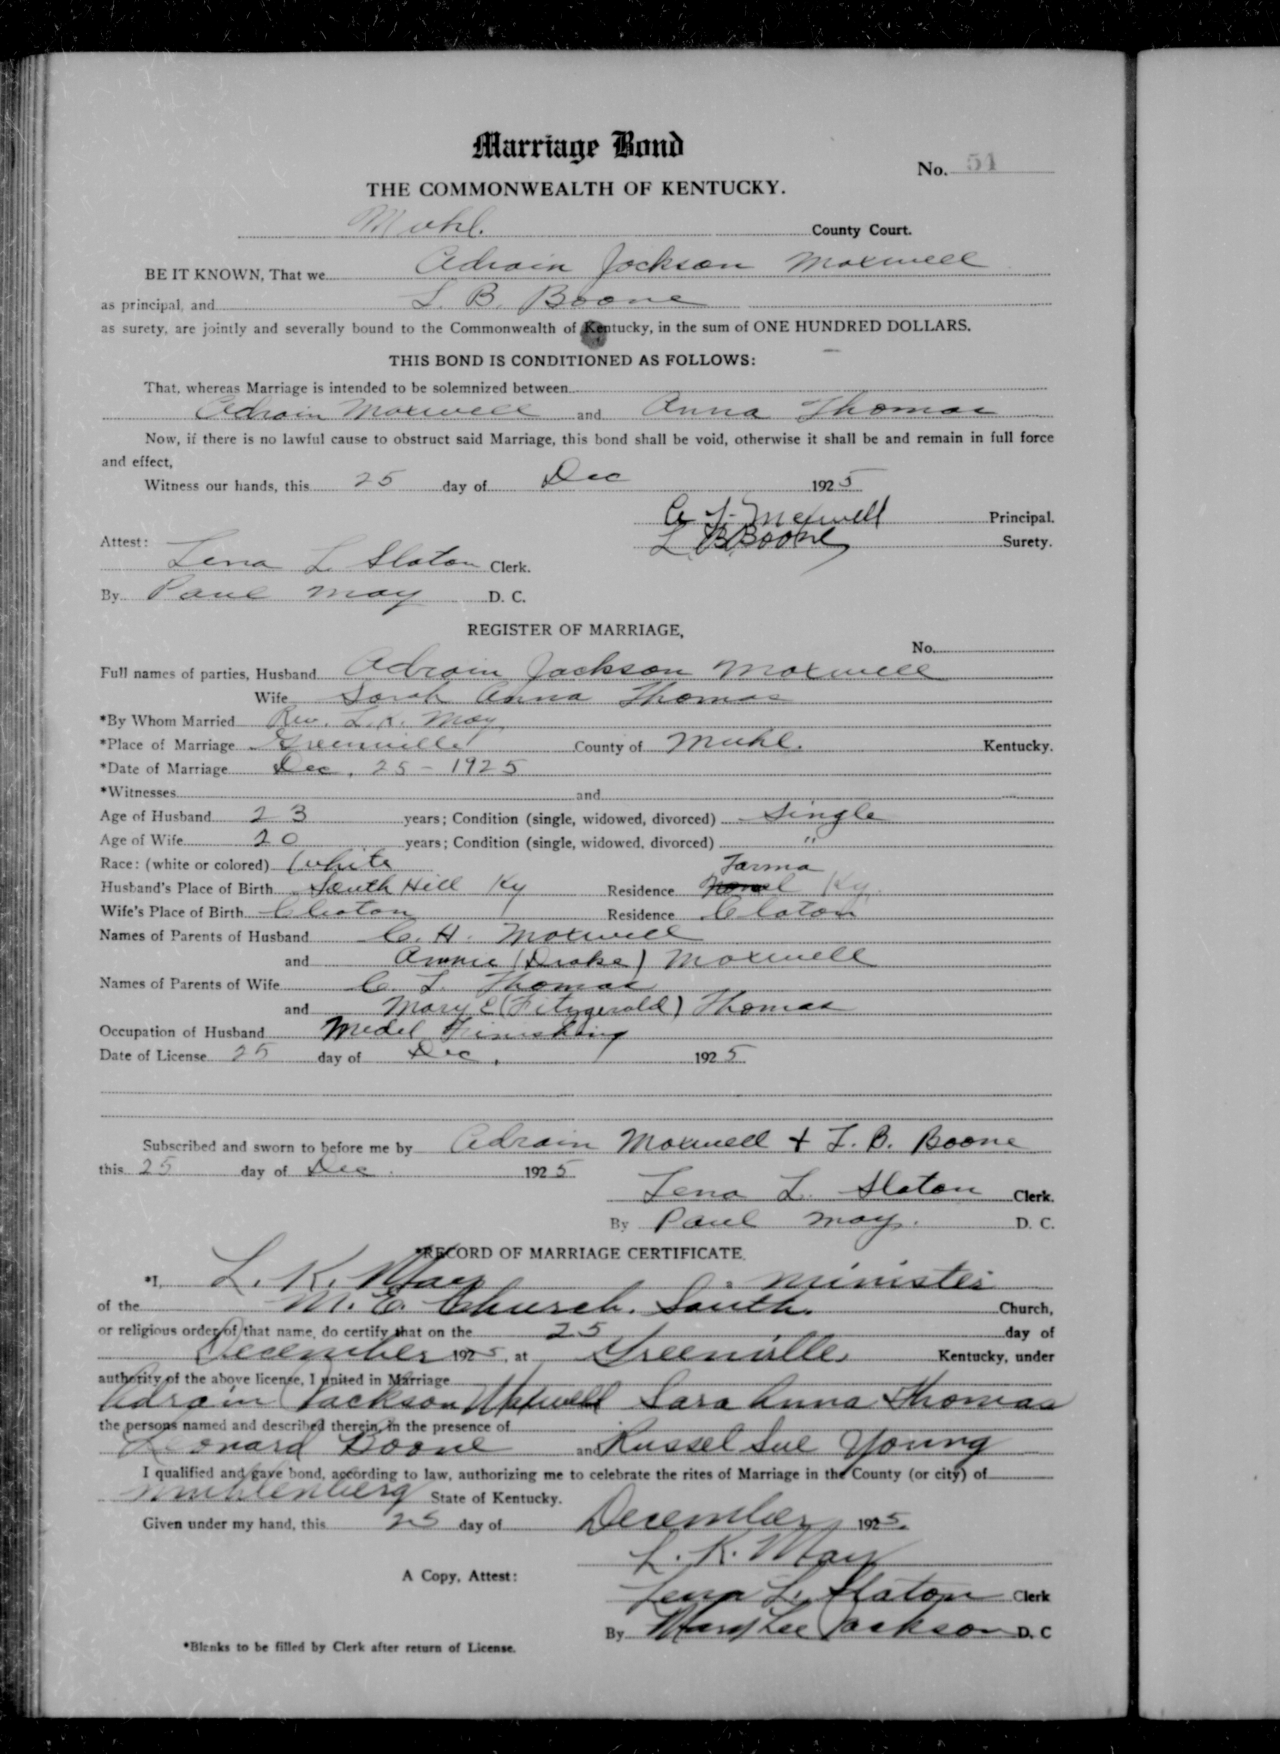 Marriage Bond
No. 51
THE COMMONWEALTH OF KENTUCKY.
Muhl. County Court.
BE IT KNOWN, That we Adrain Jackson Maxwell
as principal, and L. B. Boone
as surety, are jointly and severally bound to the Commonwealth of Kentucky, in the sum of ONE HUNDRED DOLLARS.
THIS BOND IS CONDITIONED AS FOLLOWS:
That, whereas Marriage is intended to be solemnized between
Adrain Maxwell and Anna Thomas
Now, if there is no lawful cause to obstruct said Marriage, this bond shall be void, otherwise it shall be and remain in full force
and effect,
Witness our hands, this 25 day of Dec 1925
A. J. Maxwell Principal.
L. B. Boone Surety.
Attest:
Lena L. Slaton Clerk.
By Paul May D. C.
REGISTER OF MARRIAGE,
No.
Full names of parties, Husband Adrain Jackson Maxwell
Wife Sarah Anna Thomas
*By Whom Married Rev. L. K. May
*Place of Marriage Greenville County of Muhl. Kentucky.
*Date of Marriage Dec. 25 - 1925
*Witnesses and
Age of Husband 23 years; Condition (single, widowed, divorced) Single
Age of Wife 20 years; Condition (single, widowed, divorced) "
Race: (white or colored) White
Husband's Place of Birth South Hill Ky Residence Ky.
Wife's Place of Birth Cleaton Residence Cleaton
Names of Parents of Husband C. H. Maxwell
and Annie (Drake) Maxwell
Names of Parents of Wife C. L. Thomas
and Mary E (Fitzgerald) Thomas
Occupation of Husband Medel Finishing
Date of License 25 day of Dec. 1925
Subscribed and sworn to before me by Adrain Maxwell + L. B. Boone
this 25 day of Dec. 1925
Lena L. Slaton Clerk.
By Paul May. D. C.
RECORD OF MARRIAGE CERTIFICATE.
*I, L. K. May a minister
of the M. E. Church. South. Church,
or religious order of that name, do certify that on the 25 day of
December 1925, at Greenville Kentucky, under
authority of the above license, I united in Marriage
Adrain Jackson Maxwell Sara Anna Thomas
the persons named and described therein, in the presence of
Leonard Boone and Russel Sue Young
I qualified and gave bond, according to law, authorizing me to celebrate the rites of Marriage in the County (or city) of
Muhlenberg State of Kentucky.
Given under my hand, this 25 day of December 1925.
L. K. May
A Copy, Attest:
Lena L. Slaton Clerk
By Mary Lee Jackson D. C
*Blenks to be filled by Clerk after return of License.